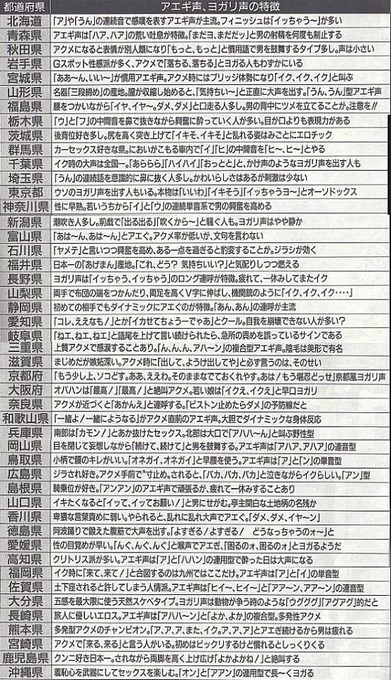 都道府県 アエギ声、ヨガリ声の特徴
北海道 「ア」や「うん」の連続音で感嘆を表すアエギ声が主流。フィニッシュは「イッちゃうー」が多い
青森県 アエギ声は「ハア、ハア」の荒い吐息が特徴。「まだヨ、まだだッ」と男の射精を何度も制止する
秋田県 アクメになると表情が別人顔になり「もっと、もっと」と慣用語で男を鼓舞するタイプ多し。声は小さい
岩手県 Gスポット性感派が多く、アクメで「落ちる、落ちる」とヨガる人もわずかにいる
宮城県 「ああ〜ん、いい〜」が慣用アエギ声。アクメ時にはブリッジ体勢になり「イク、イク、イク」と叫ぶ
山形県 名器「三段締め」の産地。膣が収縮し始めると、「気持ちい〜」と正直に大声を出す。「うん」型アエギ声
福島県 腰をつかいながら「イヤ、イヤ〜。ダメ、ダメ」と口走る人多し。男の背中にツメを立てることが。注意を!!
栃木県 「ウ」と「フ」の中間音を鼻で抜きながら興奮に酔っていく人が多い。目が口よりも表情力がある
茨城県 後背位好き多し。尻を高く突き上げて「イキそ、イキそ」と乱れる姿はみごとにエロチック
群馬県 カーセックス好きな県。においがこもる車内で「イ」「ヒ」の中間音を「ヒ〜、ヒ〜」とやる
千葉県 イク時の大声は全国一。「あらららら」「ハイハイ」「おっとと」と、かけ声のようなヨガリ声を出す人も
埼玉県 「うん」の連続語を意識的に鼻に抜く人多し。かわいらしさはあるが刺激は少ない
東京都 ウソのヨガリ声を出す人もいる。本物は「いいわ」「イキそう」「イッちゃうヨ〜」とオーソドックス
神奈川県 性に早熟。若いうちから「イ」と「ウ」の連続単音系で男の興奮を高める
新潟県 潮吹き人多し。前戯で「出る出る」「吹くから〜」と騒ぐ人も。ヨガリ声はやや静か
富山県 「あは〜ん、あは〜ん」とアエグ。アクメ率が低いが、文句を言わない
石川県 「ヤメテ」と言いつつ興奮を高め、ある一点を過ぎると豹変することが。ジラシが効く
福井県 日本一の「あげまん」産地。「これ、どう? 気持ちいい?」と気配りしつつ燃える
長野県 ヨガリ声は「イッちゃう、イッちゃう」のロング連呼が特徴。疲れて、一休みしてまたイク
山梨県 両手で布団の端をつかんだり、両足を高くV字に伸ばし、機関銃のように「イク、イク、イク・・・・」
静岡県 初めての相手でもダイナミックにアエグのが特徴。「あん、あん」の連呼が主流
愛知県 「コレ、ええなも!」とか「イカせてちょうーでゃあ」とクール。自我を崩壊できない人が多い?
岐阜県 「ねエ、ねエ、ねエ」と語尾を上げて言い続けられたら、急所の責めを誤っているサインである
三重県 上質アクメで感涙することあり。「ん、んん、ん、アハーン」の複合型アエギ声。陰毛は美形で有名
滋賀県 まじめだが嫉妬深い。アクメ時に「出して、ようけ出してや」と必ず言うのは、そのせい
京都府 「もう少し上、ソコどす。ああ、ええわ、そのままなでておくれやす。あは/もう堪忍どっせ」京都風ヨガリ声
大阪府 オバハンは「最高/」「最高/」と絶叫アクメ。若い娘は「イクえ、イクえ」と早口ヨガリ
奈良県 アクメが近づくと「あかんえ」と連呼する。「ピストン止めたらダメ」の予防線だと
和歌山県 「一緒よ/一緒にようになる」がアクメ直前のアエギ声。大胆でダイナミックな身体反応
兵庫県 南部は「カモン/」とあか抜けたセックス。北部は大口で「アハハ〜ん」と叫ぶ野性型
岡山県 日を閉じて妄想しながら「続けて、続けて」と男を鼓舞する。アエギ声は「アハア、アハア」の連音型
鳥取県 小柄で腰のキレがいい。「オネガイ、オネガイ」と早腰を使う。アエギ声は「ア」と「ン」の単音型
広島県 ジラされ好き。アクメ手前で“寸止め〟されると、「バカ、バカ、バカ」と泣きながらイクらしい。「アン」型
島根県 騎乗位が好き。「アンアン」のアエギ声で頑張るが、疲れて一休みすることあり
山口県 イキたくなると「イッて、イッてお願い/」と男にせがむ。亭主関白な土地柄の名残か
香川県 卑猥な言葉責めに弱い。やられると、乱れに乱れ大声でアエグ。「ダメ、ダメ、イヤーン」
徳島県 阿波踊りで鍛えた腹筋で大声を出す。「よすぎる/よすぎる/ どうなっちゃうの〜」と
愛媛県 性の目覚めが早い。「んぐ、んぐ、んぐ」と喉声でアエギ、「困るのォ、困るのォ」とヨガるようだ
高知県 クリトリス派が多い。アエギ声は「ア」と「ハハン」の連用型で酔った日は大声になる
福岡県 イク時に「来て、来て/」と合図するのは九州ではここだけ。アエギ声は「ア」と「イ」の単音型
佐賀県 土下座されると許してしまう人情派。アエギ声は「ヒイ〜、ヒイ〜」と「アア〜ン、アア〜ン」の連音型
大分県 五感を最大限に使う天然スケベタイプ。ヨガリ声は動物が争う時のような「ウグググ」「アグアグ」的だと
長崎県 旅人に優しいエロス。アエギ声は「アハハ〜ン」と「よか、よか」の複合型。多発性アクメ
熊本県 多発型アクメのチャンピオン。「ア、ア、ア、また、イク。ア、ア、ア」とアエギ続けるから男は疲れる
宮崎県 アクメで「来る、来る」と言う人がいる。初めはビックリするけど慣れるとしっくりくる
鹿児島県 クンニ好き日本一。されながら両脚を高く上げ広げ「よかよかね/」と絶叫する
沖縄県 羞恥心を武器にしてセックスを楽しむ。「オン」と「アアン」の連用型で長〜くヨガる